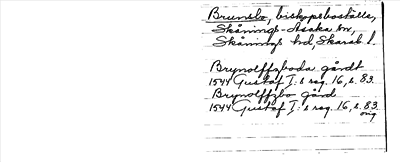 Brunsbo, biskopsboställe,
Skånings-Åsaka sn,
Skånings hd, Skarab. l.
Brynolffzboda gårdt
1544 Gustaf I:s reg. 16, s. 83.
Brynolffzbo gård
1544 Gustaf I:s reg. 16, s. 83
orig